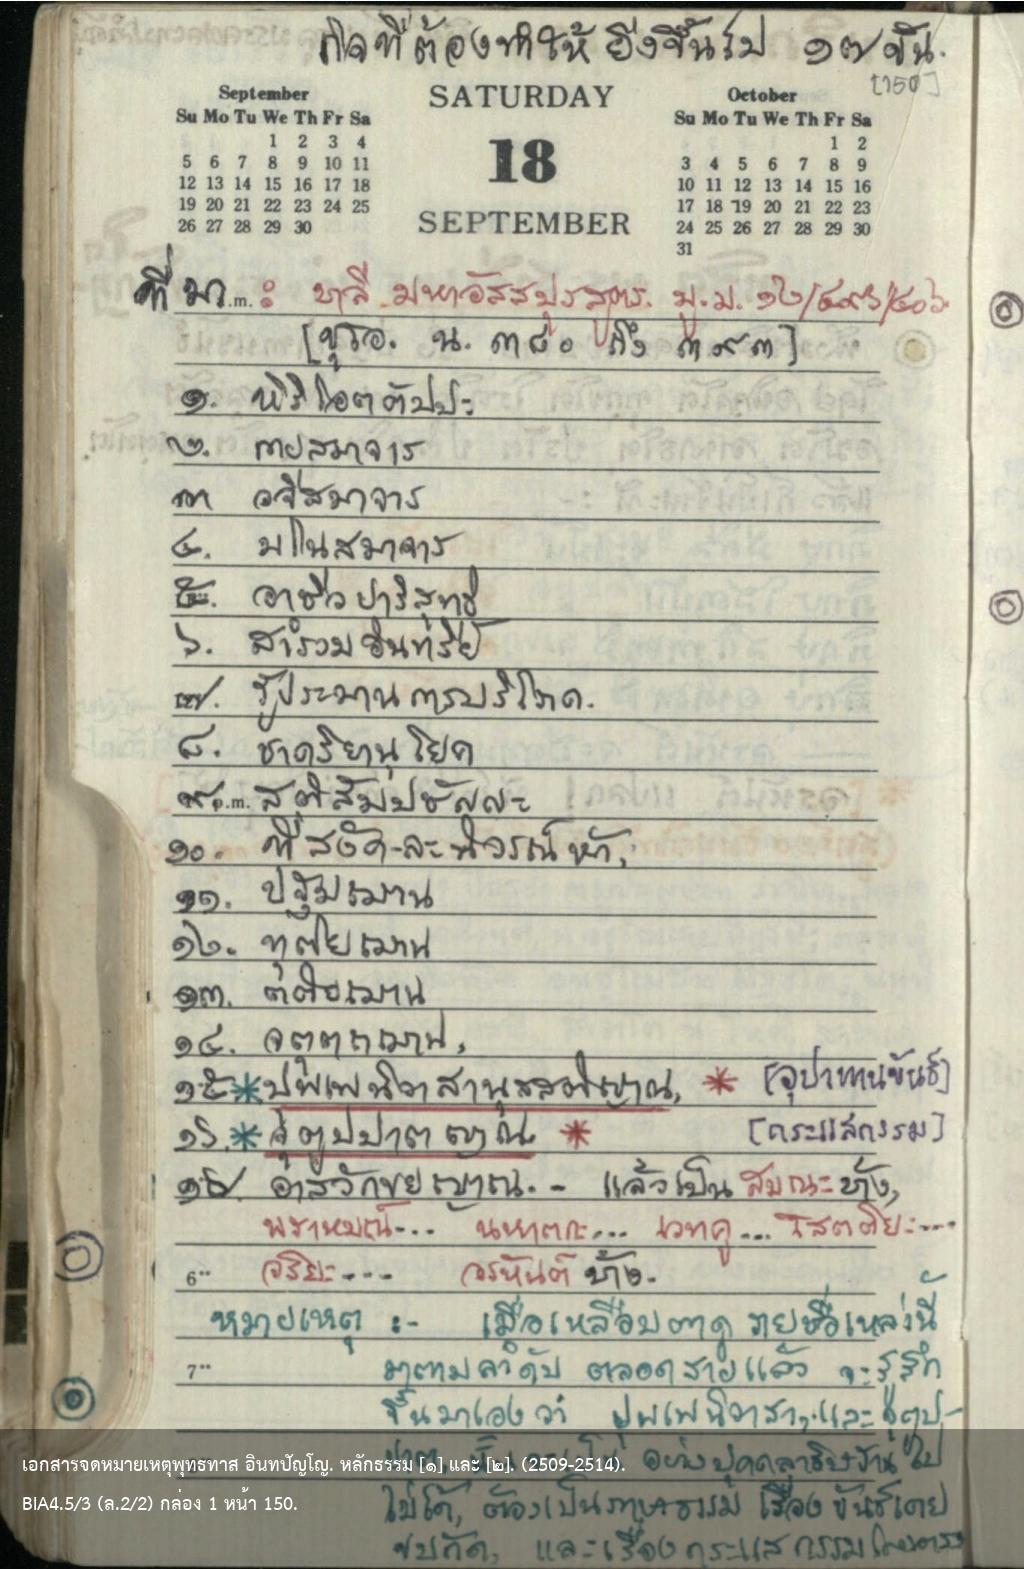 กิจที่ต้องทำให้ ยิ่งขึ้นไป ๑๗ ขั้น.
[150]
September
Su Mo Tu We Th Fr Sa
1 2 3 4
5 6 7 8 9 10 11
12 13 14 15 16 17 18
19 20 21 22 23 24 25
26 27 28 29 30
SATURDAY
18
SEPTEMBER
October
Su Mo Tu We Th Fr Sa
1 2
3 4 5 6 7 8 9
10 11 12 13 14 15 16
17 18 19 20 21 22 23
24 25 26 27 28 29 30
31
ที่มา .m. : บาลี มหาอัสสปุรสูตร. มู.ม. ๑๒/๔๙๖/
[ขุ.โอ. น. ๓๘๐ ถึง ๓๙๓]
๑. หิริโอตตัปปะ
๒. กายสมาจาร
๓ วจีสมาจาร
๔. มโนสมาจาร
๕. อาชีวปาริสุทธิ
๖. สำรวมอินทรีย์
๗. รู้ประมาณการบริโภค.
๘. ชาคริยานุโยค
๙. p.m. สติสัมปชัญญะ
๑๐. ที่สงัด-ละนิวรณ์ห้า,
๑๑. ปฐมฌาน
๑๒. ทุติยฌาน
๑๓. ตติยฌาน
๑๔. จตุตถฌาน,
๑๕ * ปุพเพนิวาสานุสสติญาณ, * [อุปาทานขันธ์]
๑๖. * จุตูปปาตญาณ * [กระแสกรรม]
๑๗. อาสวักขยญาณ. - แล้วเป็น สมณะบ้าง,
พราหมณ์--.. นหาตกะ... เวทคู... โสตติยะ----
6°° อริยะ---- อรหันต์ บ้าง.
หมายเหตุ :- เมื่อเหลือบตาดู รายชื่อเหล่านี้
7°° มาตามลำดับ ตลอดสายแล้ว จะรู้สึก
ขึ้นมาเองว่า ปุพเพนิวาสา, และ จุตูป-
ปาต อย่างปุคคลาธิษฐาน ไป
ไม่ได้, ต้องเป็นภาษาธรรม เรื่อง ขันธ์โดย
และเรื่อง กระแสกรรม
เอกสารจดหมายเหตุพุทธทาส อินทปัญโญ. หลักธรรม [๑] และ [๒]. (2509-2514).
BIA4.5/3 (ล.2/2) กล่อง 1 หน้า 150.